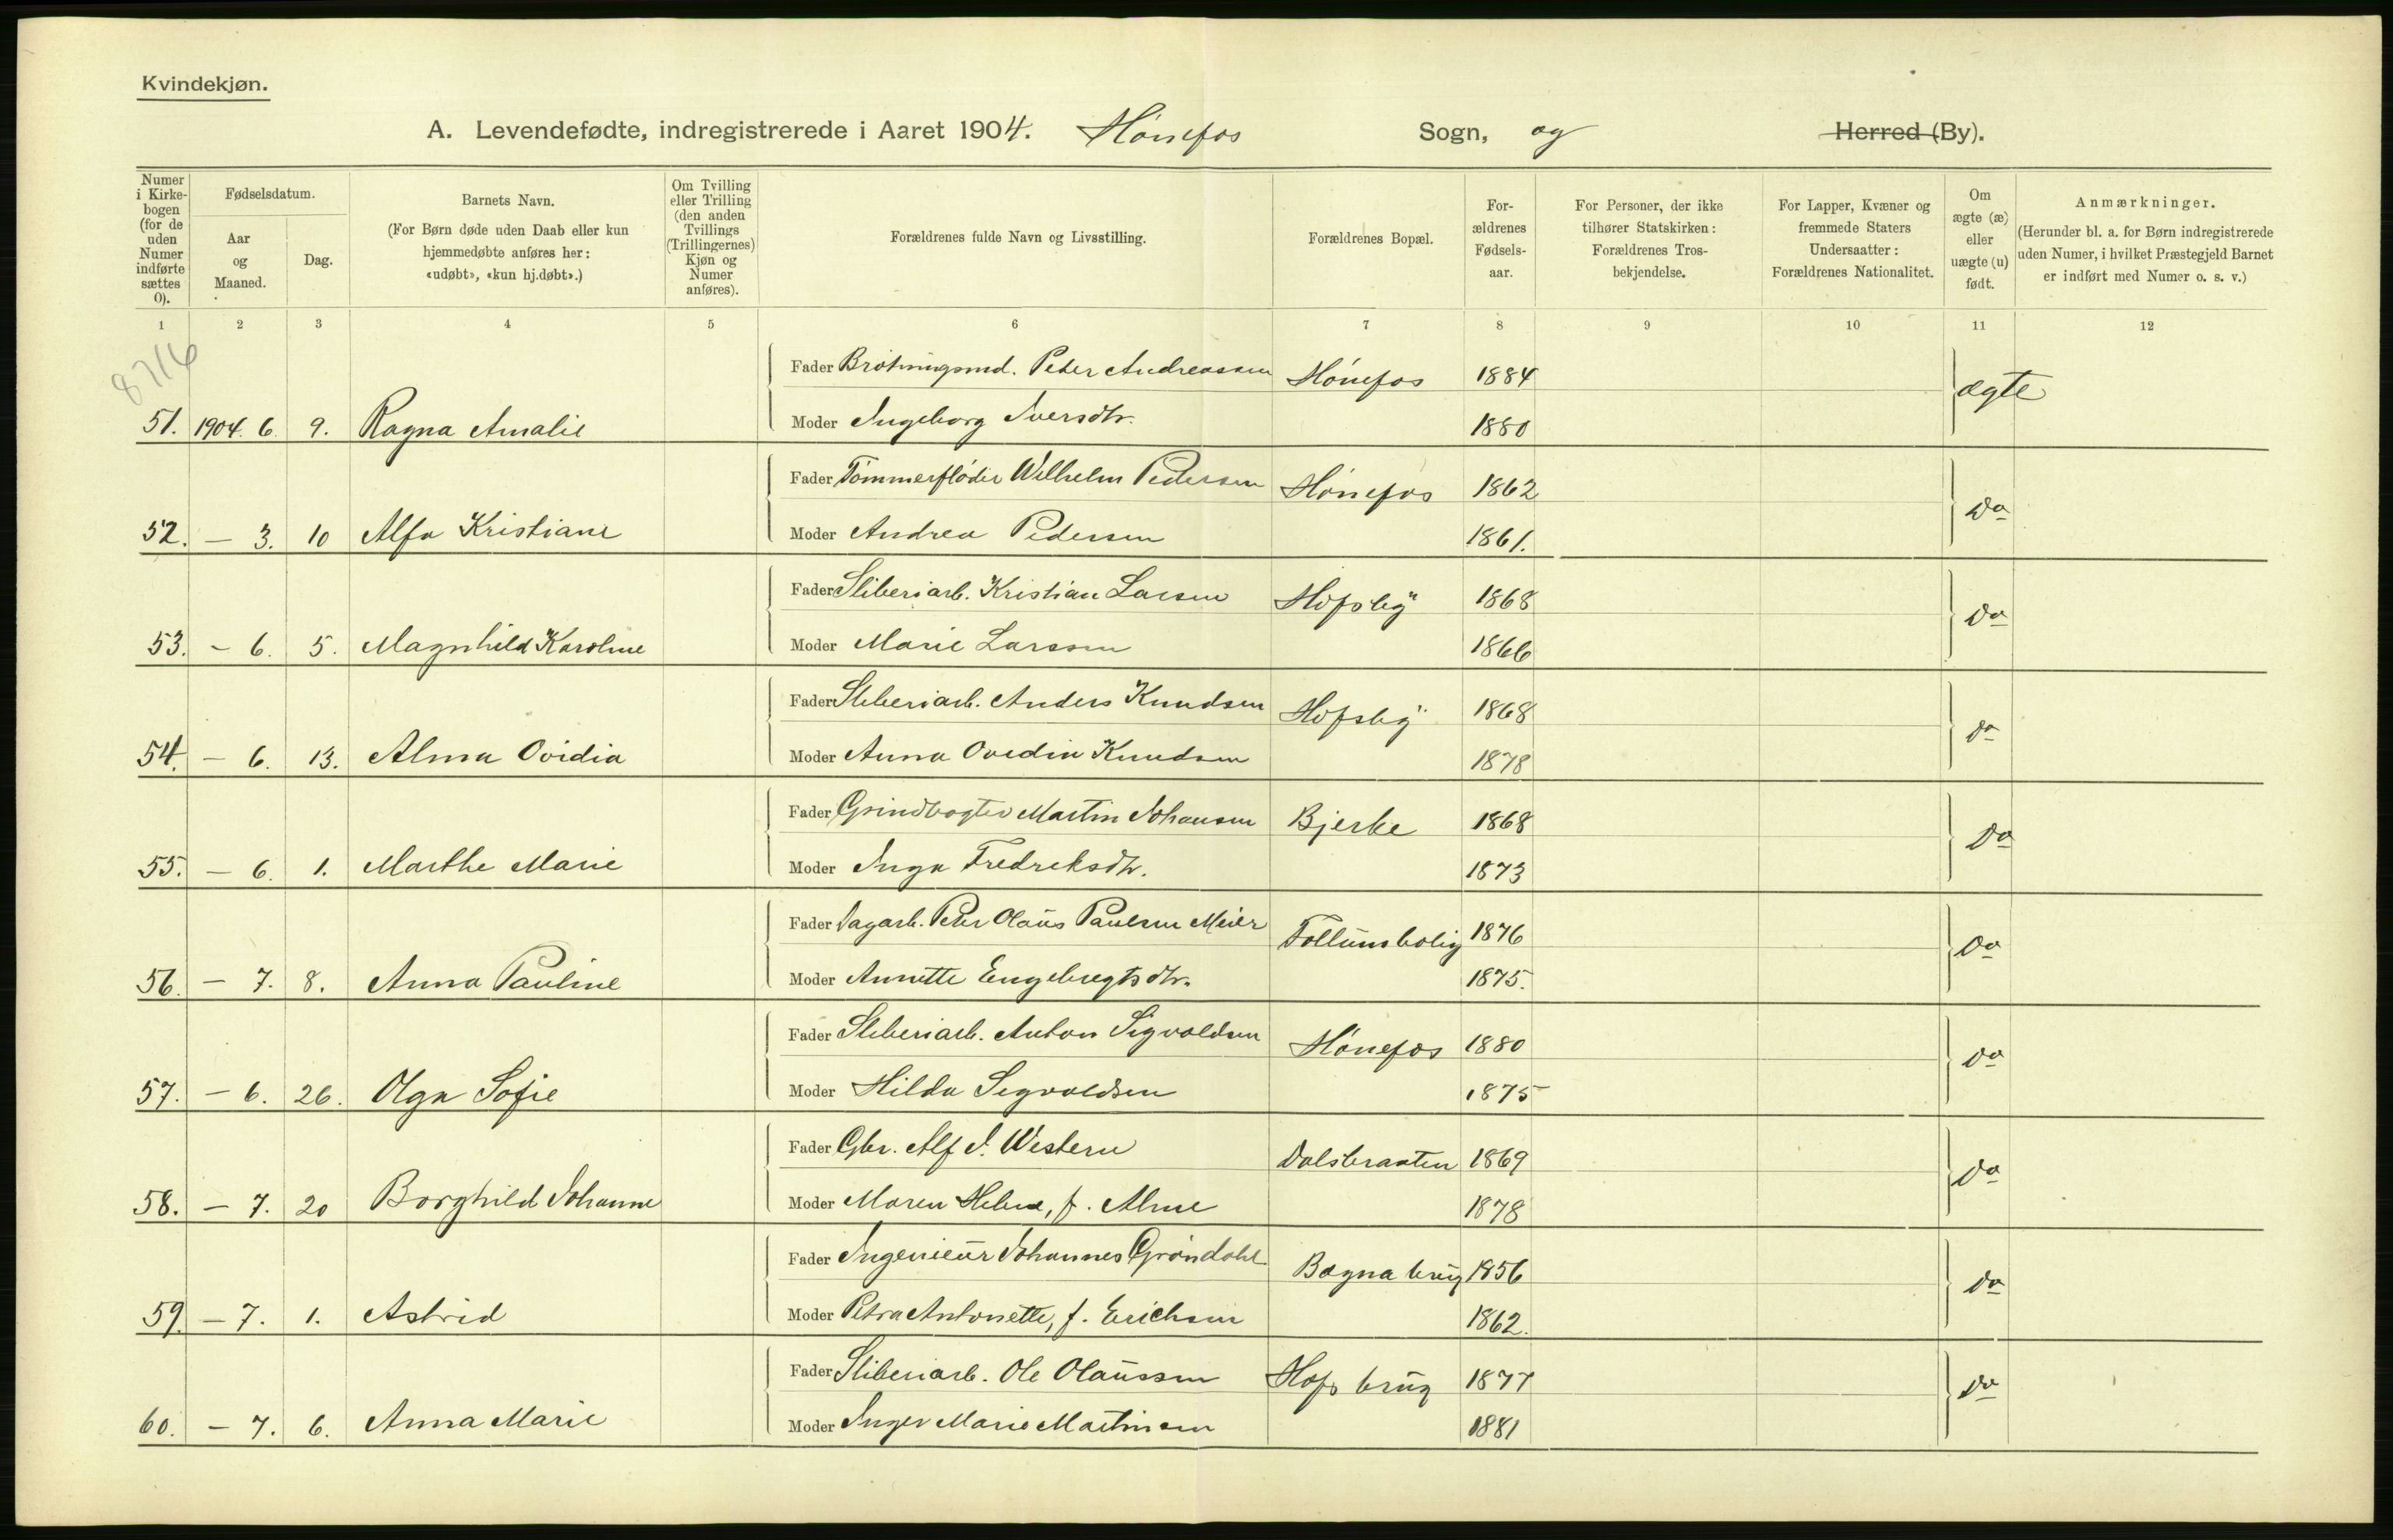 Kvindekjøn.
A. Levendefødte, indregistrerede i Aaret 1904. Hønefos Sogn, og Herred (By).
Numer i Kirke-bogen (for de uden Numer indførte sættes 0).
Fødselsdatum.
Aar og Maaned.
Dag.
Barnets Navn.
(For Børn døde uden Daab eller kun hjemmedøbte anføres her: «udøbt», «kun hj.døbt».)
Om Tvilling eller Trilling (den anden Tvillings (Trillingernes) Kjøn og Numer anføres).
Forældrenes fulde Navn og Livsstilling.
Forældrenes Bopæl.
For-ældrenes Fødsels-aar.
For Personer, der ikke tilhører Statskirken: Forældrenes Tros-bekjendelse.
For Lapper, Kvæner og fremmede Staters Undersaatter: Forældrenes Nationalitet.
Om ægte (æ) eller uægte (u) født.
Anmærkninger.
(Herunder bl. a. for Børn indregistrerede uden Numer, i hvilket Præstegjeld Barnet er indført med Numer o. s. v.)
1 2 3 4 5 6 7 8 9 10 11 12
8716
Fader Peter Andreassen Hønefos 1884 ægte
51. 1904. 6. 9. Ragna Amalie Moder Ingeborg Iversdtr. 1880
Fader Tømmerfløder Wilhelm Pedersen Hønefos 1862 Do
52. — 3. 10 Alfa Kristiane Moder Andrea Pedersen 1861.
Fader Sliberiarb. Kristian Larsen Hofsby 1868 Do
53. – 6. 5. Magnhild Karoline Moder Marie Larssen 1866
Fader Sliberiarb. Anders Knudsen Hofsby 1868 Do
54. — 6. 13. Alma Ovidia Moder Anna Ovidia Knudsen 1878
Fader Grindvogter Martin Johansen Bjerke 1868 Do
55. — 6. 1. Marthe Marie Moder Inga Fredriksdtr. 1873
Fader Dagarb. Peter Olaus Paulsen Meier Follumsbolig 1876 Do
56. — 7. 8. Anna Pauline Moder Annette Engebregtsdtr. 1875.
Fader Sliberiarb. Anton Sigvoldsen Hønefos 1880 Do
57. — 6. 26. Olga Sofie Moder Hilda Sigvoldsen 1875
Fader Gbr. Alf J. Western Dalsbraaten 1869 Do
58. — 7. 20 Borghild Johanne Moder Maren Helene, f. Alme 1878
Fader Ingenieur Johannes Grøndahl Bægna brug 1856 Do
59. — 7. 1. Astrid Moder Petra Antonette, f. Erichsen 1862.
Fader Sliberiarb. Ole Olaussen Hofs brug 1877 Do
60. — 7. 6. Anna Marie Moder Inger Marie Martinsen 1881